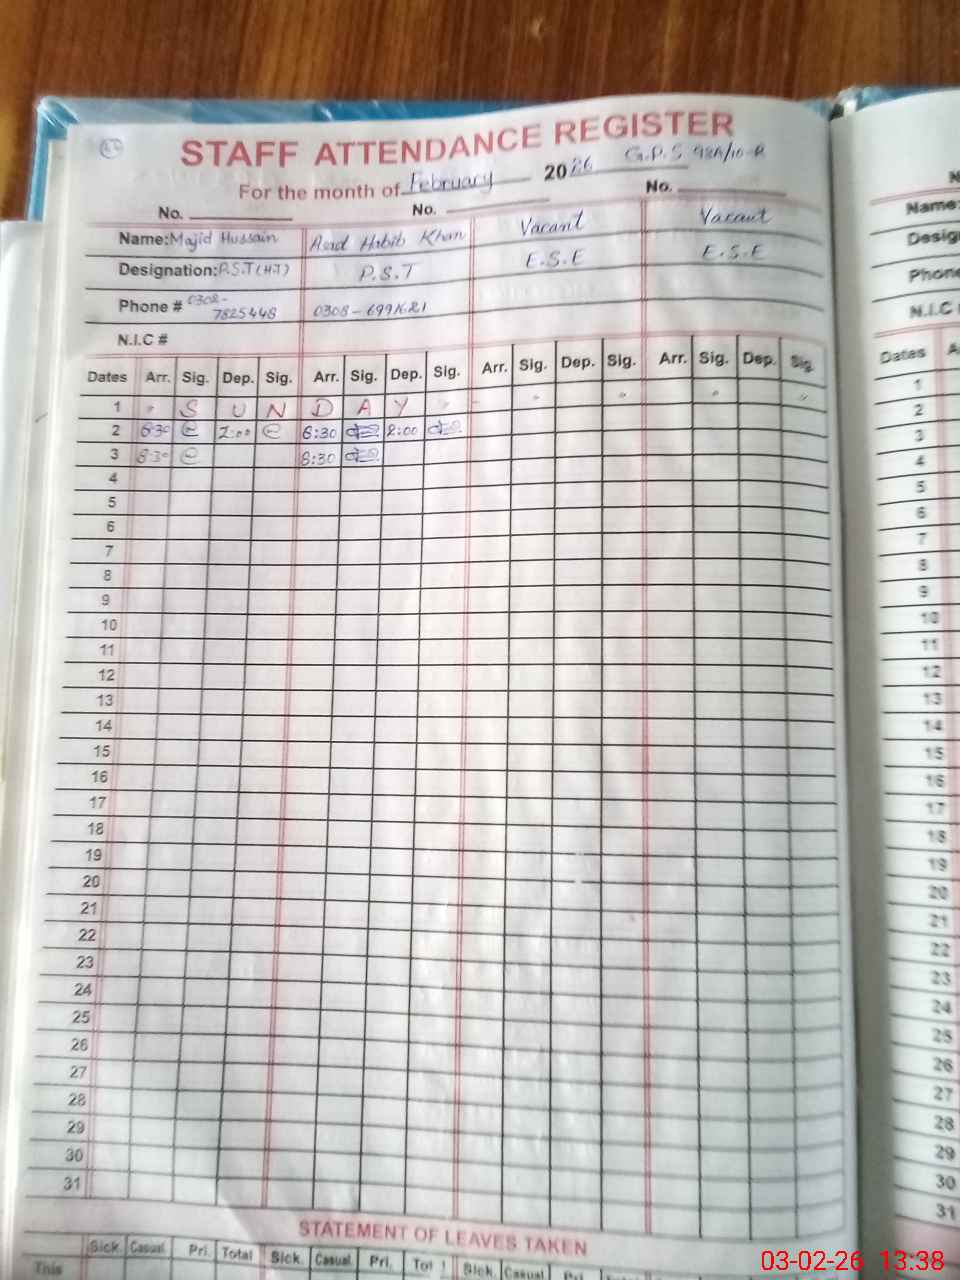 STAFF ATTENDANCE REGISTER
For the month of February 2026 G.P.S 98A/10-R
No. No. No.
Name: Majid Hussain Asad Habib Khan Vacant Vacant
Designation: P.S.T (H.T) P.S.T E.S.E E.S.E
Phone # 0308-7825448 0308-
N.I.C #
Dates Arr. Sig. Dep. Sig. Arr. Sig. Dep. Sig. Arr. Sig. Dep. Sig. Arr. Sig. Dep. Sig.
1 S U N D A Y
2 8:30 2:00 8:30 2:00
3 8:30 8:30
4
5
6
7
8
9
10
11
12
13
14
15
16
17
18
19
20
21
22
23
24
25
26
27
28
29
30
31
STATEMENT OF LEAVES TAKEN
Sick. Casual. Pri. Total Sick. Casual. Pri. Sick. Casual.
This
Name:
Phone
N.I.C
Dates
1
2
3
4
5
6
7
8
9
10
11
12
13
14
15
16
17
18
19
20
21
22
23
24
25
26
27
28
29
30
31
03-02-26 13:38